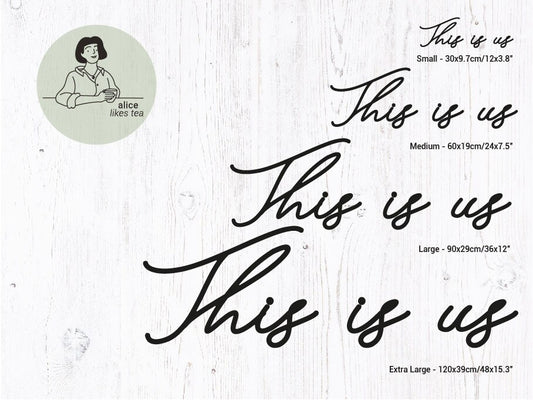 This is us
Small - 30x9.7cm/12x3.8"
alice
likes tea
This is us
Medium - 60x19cm/24x7.5"
This is us
Large - 90x29cm/36x12"
This is us
Extra Large - 120x39cm/48x15.3"